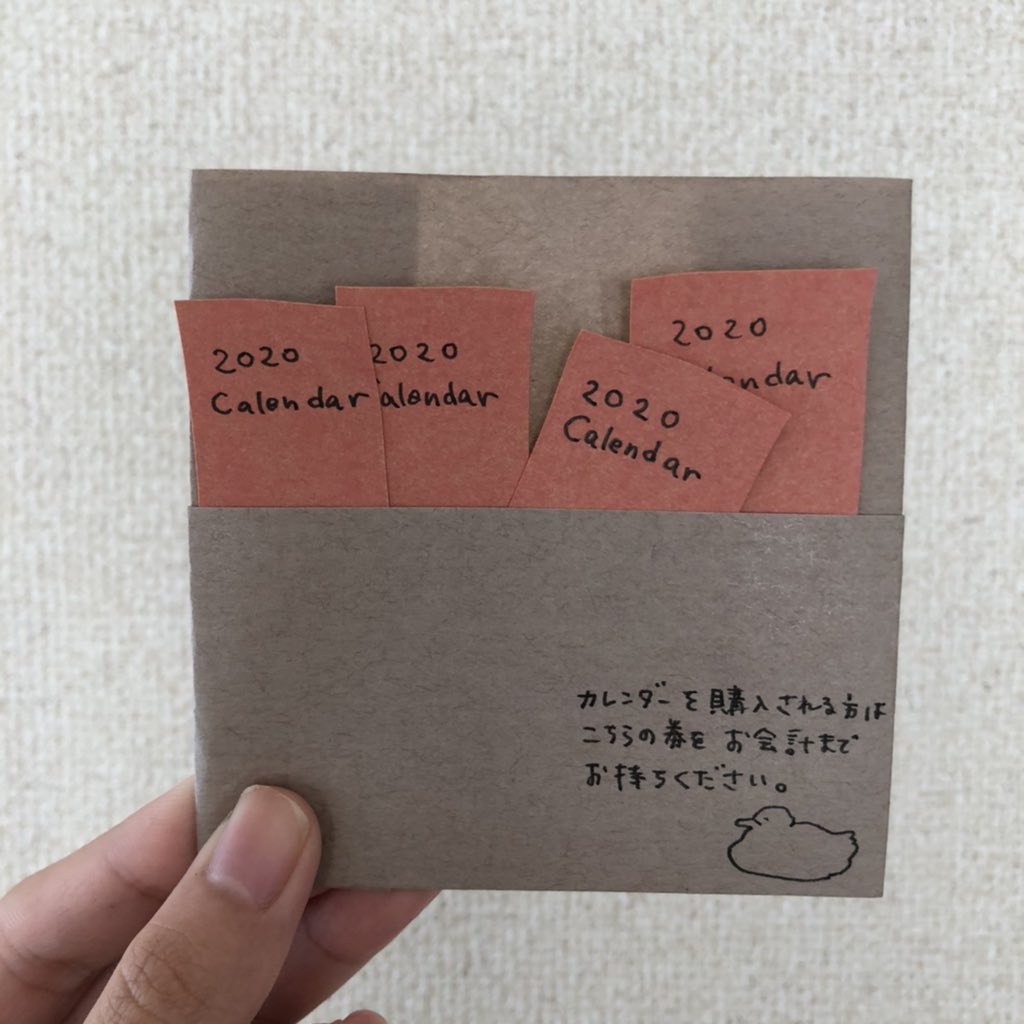 2020
Calendar
2020
alendar
2020
Calendar
2020
ndar
カレンダーを購入される方は
こちらの券をお会計まで
お持ちください。